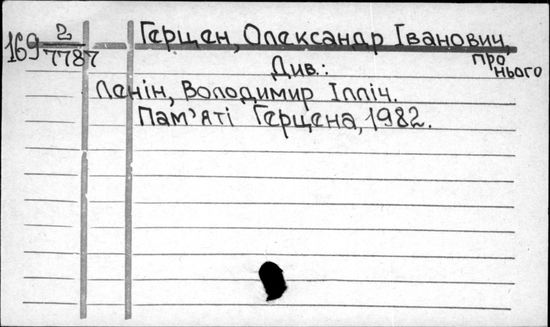 Герцен, Олександр Іванович.
про нього
169 2/7787
Див.:
Ленін, Володимир Ілліч.
Пам'яті Герцена, 1982.